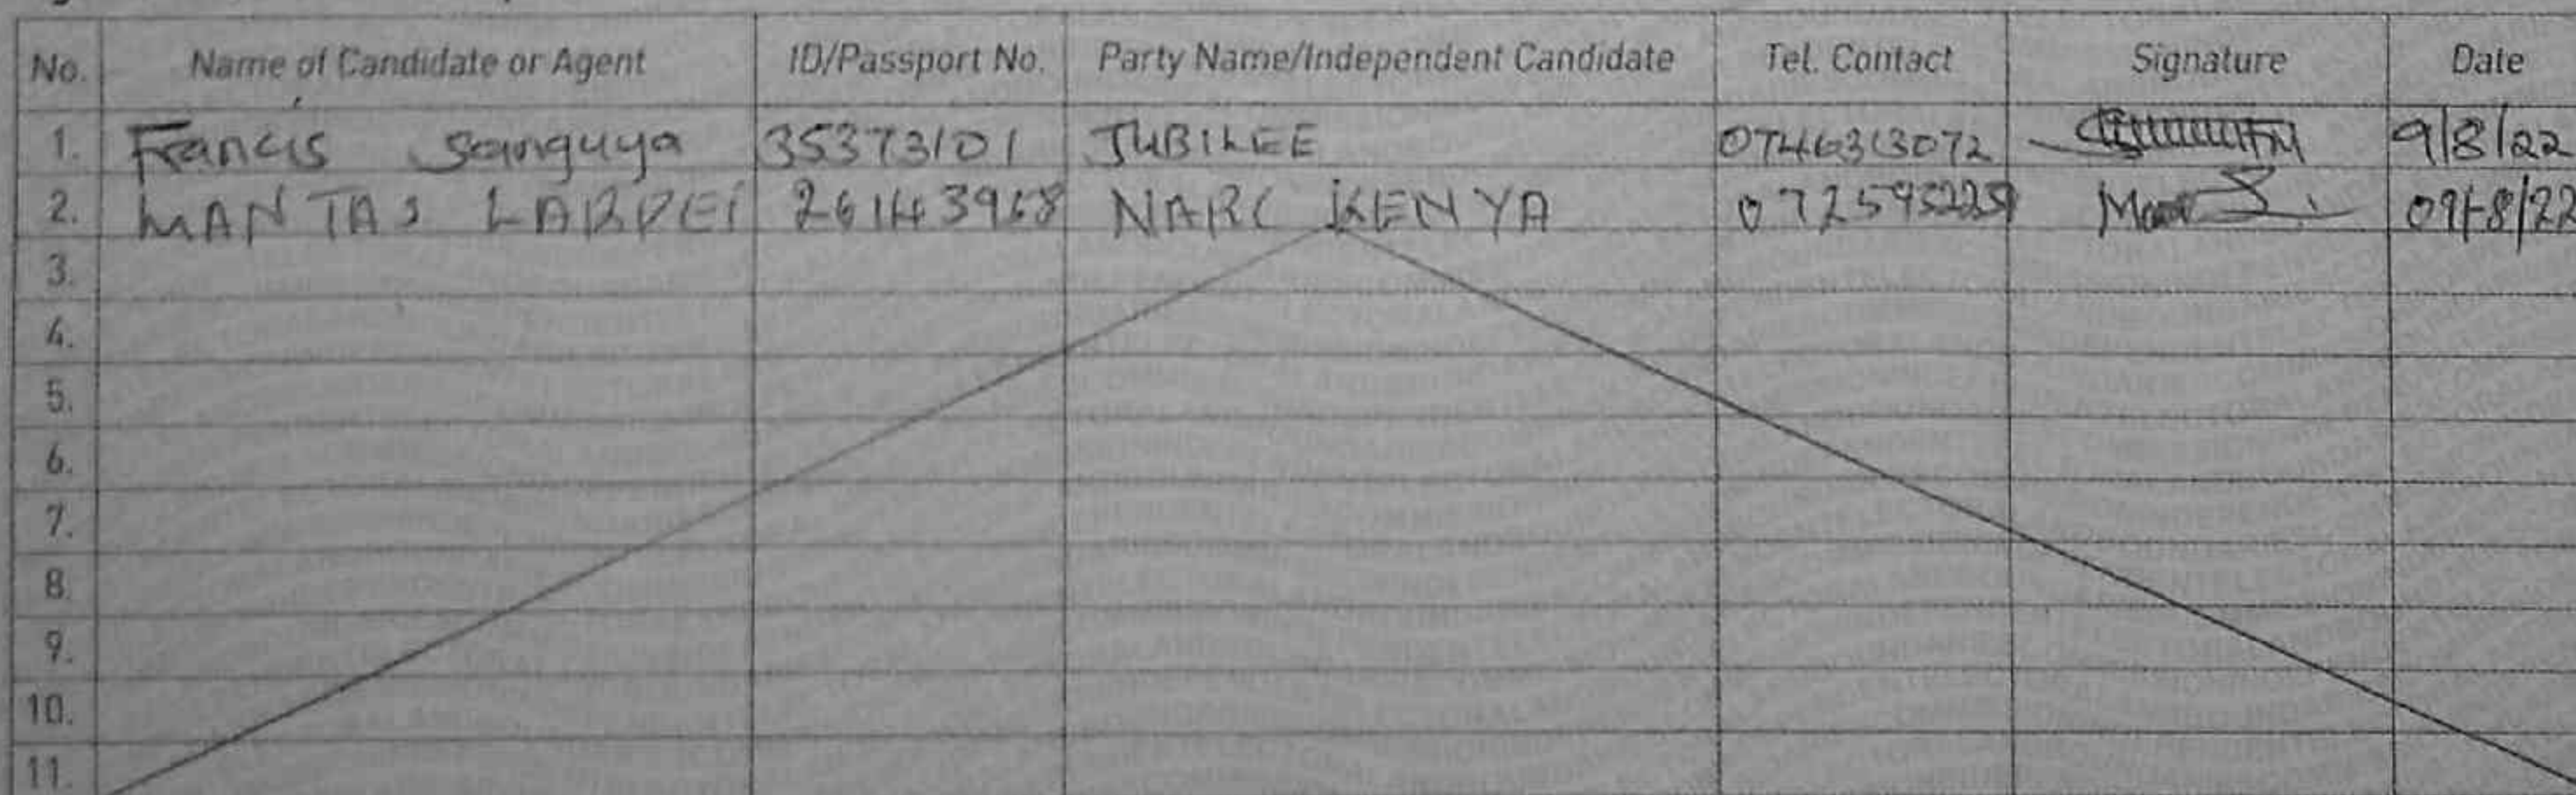 No. Name of Candidate or Agent ID/Passport No. Party Name/Independent Candidate Tel. Contact Signature Date
1. Francis Sanguya 35373101 JUBILEE 0746313072 9/8/22
2. MANTAS LARPEI 26143968 NARC KENYA 09/8/22
3.
4.
5.
6.
7.
8.
9.
10.
11.